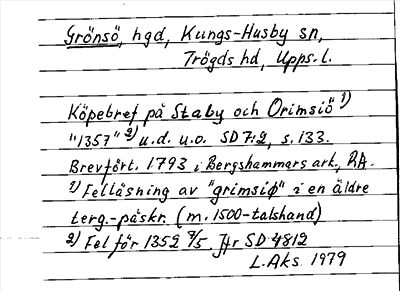 Grönsö, hgd, Kungs-Husby sn,
Trögds hd, Upps. l.
Köpebref på Staby och Orimsiö 1)
"1357" 2) u.d. u.o. SD 7:2, s. 133.
Brevfört. 1793 i Bergshammars ark., RA.
1) Felläsning av "grimsiø" i en äldre
terg.-påskr. (m. 1500-talshand)
2) Fel för 1352 7/5. Jfr SD 4812
L. Aks. 1979